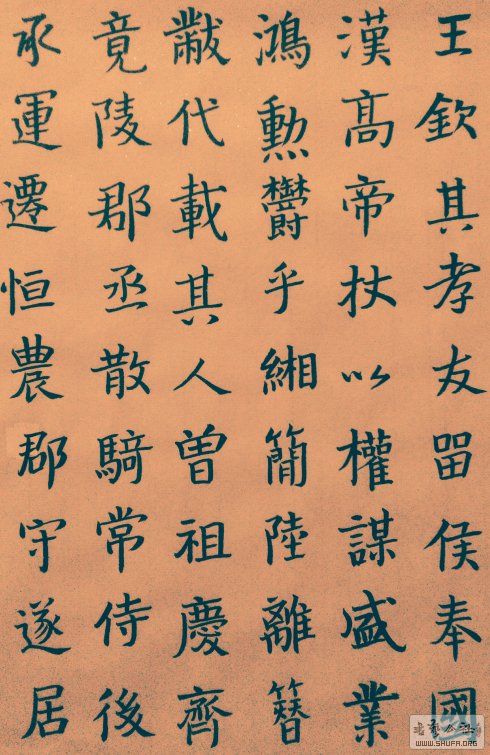 王欽其孝友留侯奉國
漢高帝杖以權謀盛業
鴻勳鬱乎緗簡陸離簪
黻代載其人曾祖慶齊
竟陵郡丞散騎常侍後
承運遷恒農郡守遂居
WWW.SHUFA.ORG